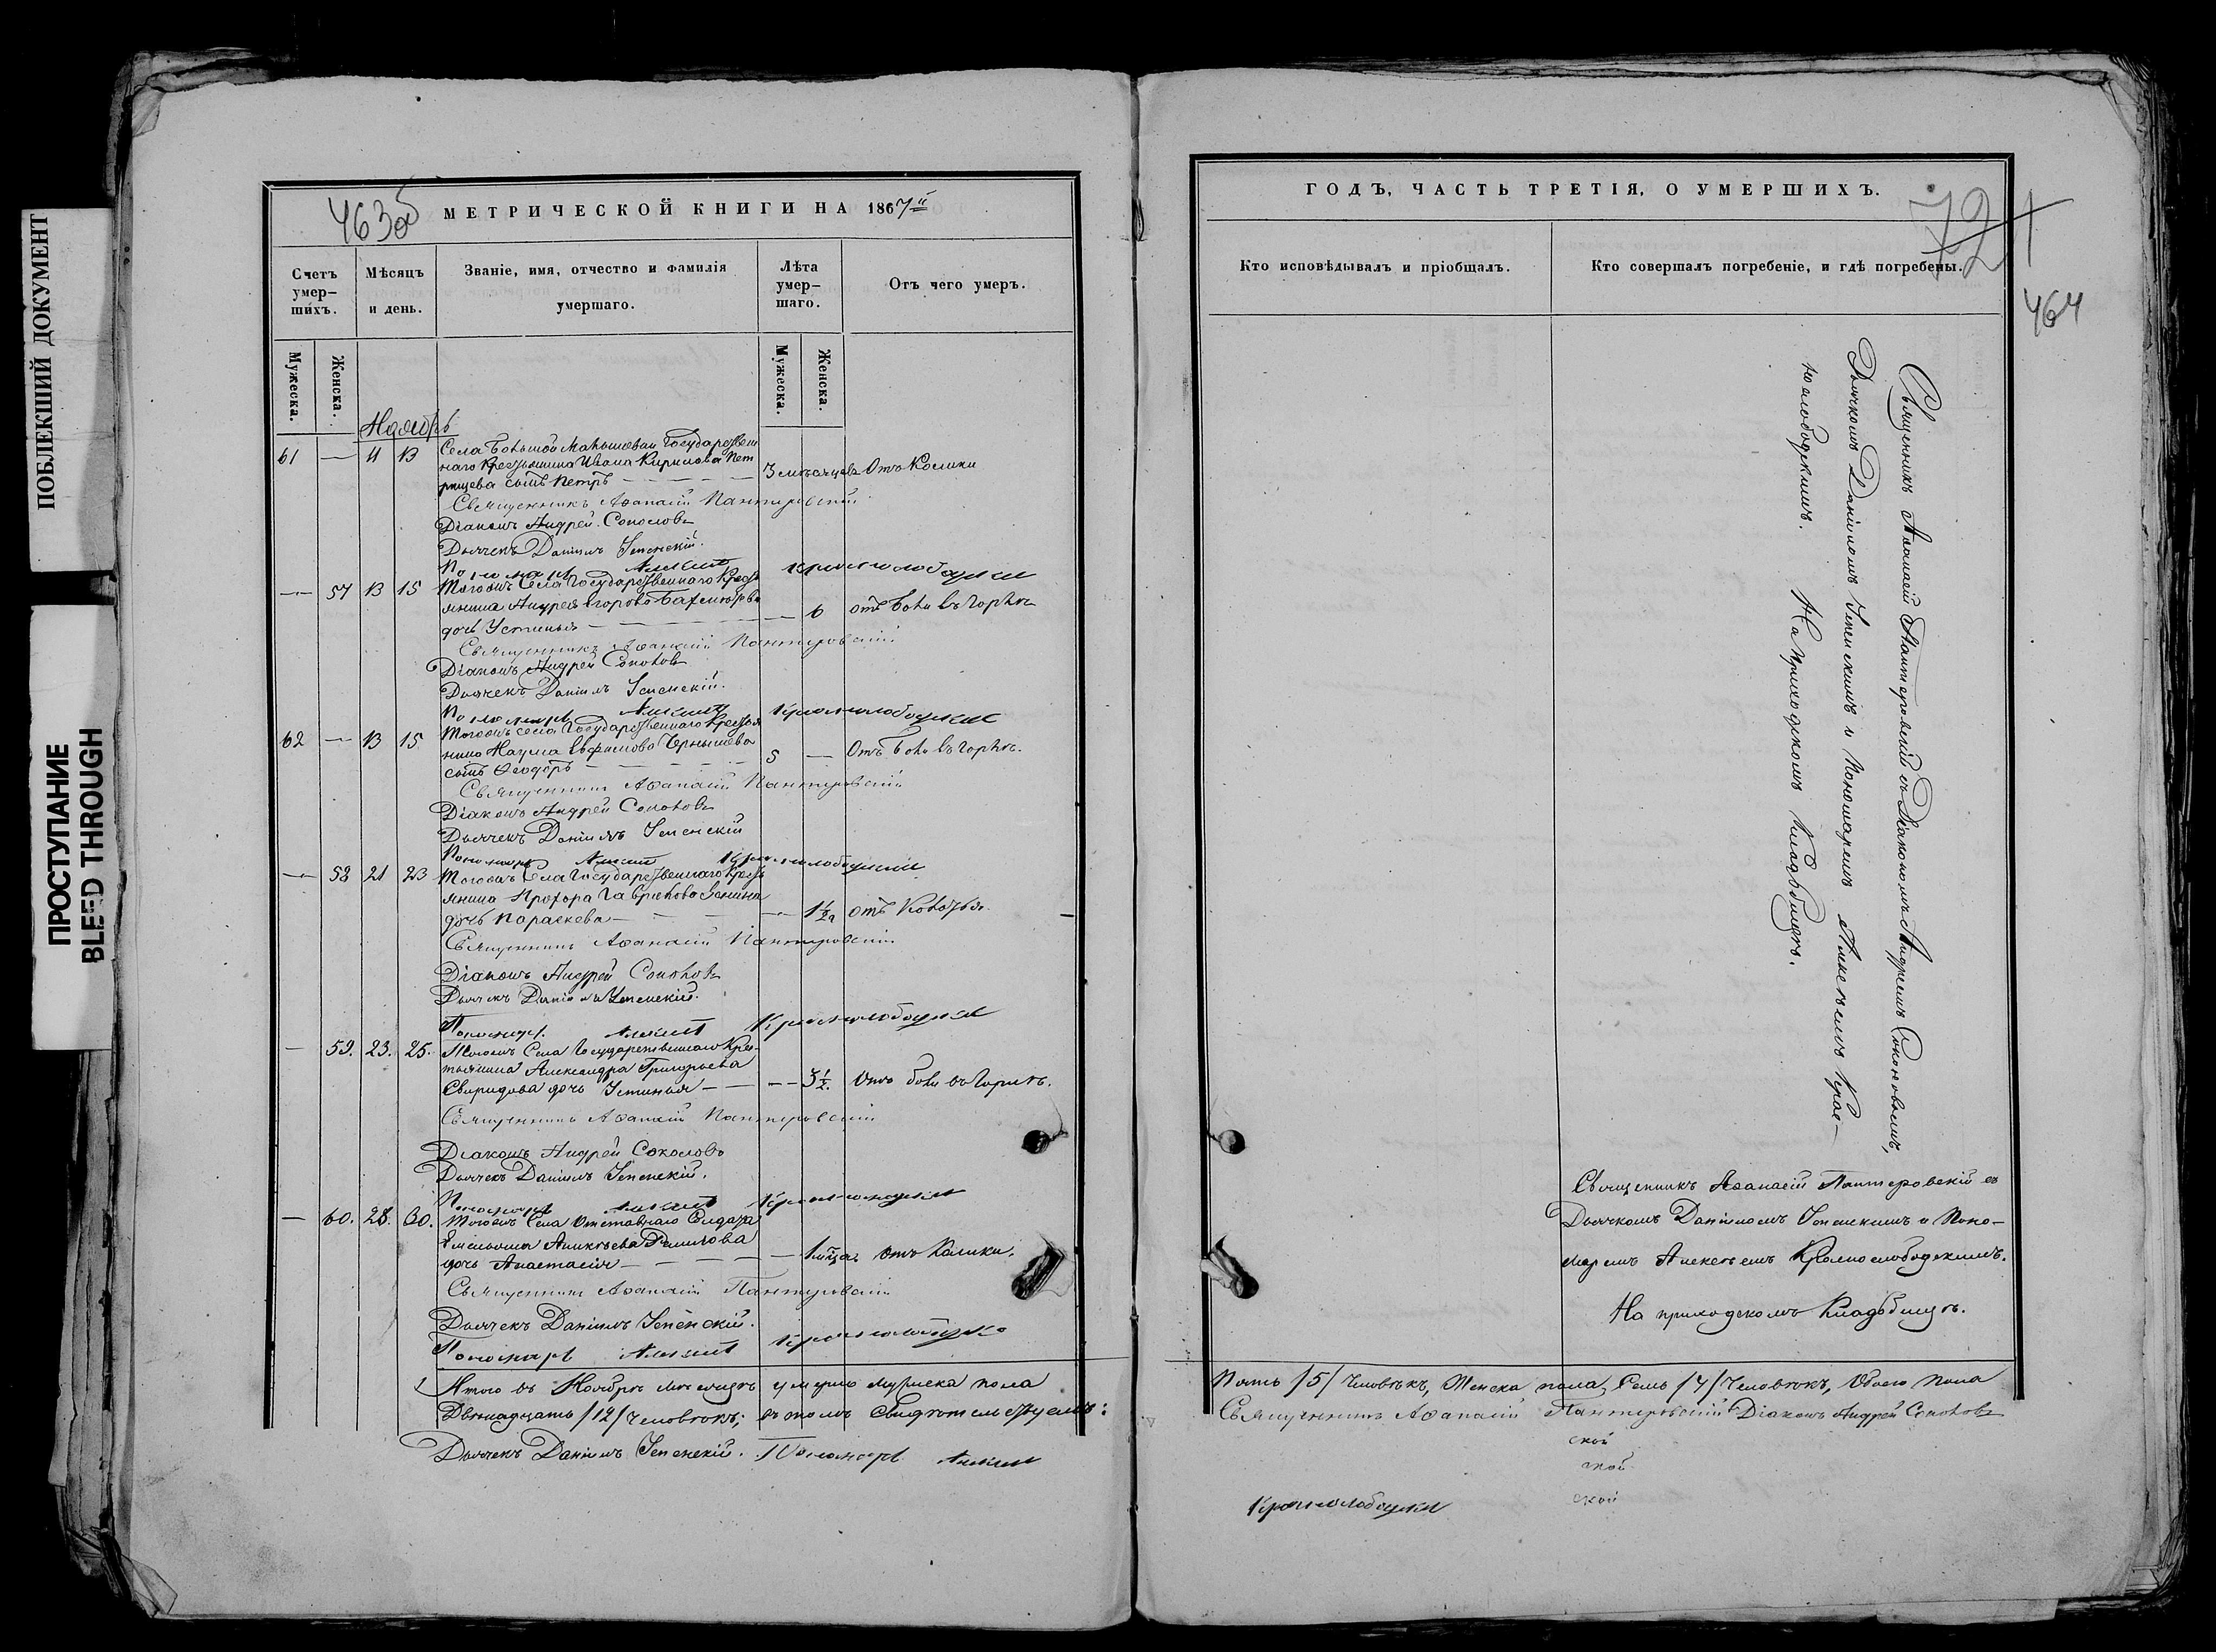 ПОБЛЕКШИЙ ДОКУМЕНТ
ПРОСТУПАНИЕ
BLEED THROUGH
463об
МЕТРИЧЕСКОЙ КНИГИ НА 1867й
Счетъ умер-шихъ.
Мѣсяцъ и день.
Званіе, имя, отчество и фамилія умершаго.
Лѣта умер-шаго.
Отъ чего умеръ.
Мужеска.
Женска.
Мужеска.
Женска.
Ноябрь
61 — 11 13 Села Большой Государствен
наго Крестьянина Ивана Кирилова Пет
рищева сынъ Петръ — 3 мѣсяцевъ Отъ Колики
Священникъ Аѳанасій Пантеровскій
Діаконъ Андрей Соколовъ
Дьячекъ Даніилъ Успенскій.
Пономарь Алексій Краснослободскій
— 57 13 15 Тогожъ Села Государственнаго Кресть
янина Андрея Егорова
дочь Устинья — 6 отъ боли въ горлѣ
Священникъ Аѳанасій Пантеровскій
Діаконъ Андрей Соколовъ
Дьячекъ Даніилъ Успенскій.
Пономарь Алексій Краснослободскій
62 — 13 15 Тогожъ села Государственнаго Крестья
нина Наума Ефимова Чернышева
сынъ Ѳеодоръ — 5 — Отъ боли въ горлѣ.
Священникъ Аѳанасій Пантеровскій
Діаконъ Андрей Соколовъ
Дьячекъ Даніилъ Успенскій
Пономарь Алексій Краснослободскій
— 58 21 23 Тогожъ Села Государственнаго Кресть
янина Прохора Гаврилова
дочь Параскева — 1½ отъ Колотья
Священникъ Аѳанасій Пантеровскій
Діаконъ Андрей Соколовъ
Дьячекъ Даніилъ Успенскій.
Пономарь Алексій Краснослободскій
— 59. 23. 25. Тогожъ Села Государственнаго Крес-
тьянина Александра Григорьева
Свиридова дочь Устинья — 3½. Отъ боли въ горлѣ.
Священникъ Аѳанасій Пантеровскій
Діаконъ Андрей Соколовъ
Дьячекъ Даніилъ Успенскій.
Пономарь Алексій Краснослободскій
— 60. 28. 30. Тогожъ Села Отставнаго Солдата
Емельяна Алексѣева
дочь Анастасія — 1 мѣ̃ца. Отъ Колики.
Священникъ Аѳанасій Пантеровскій
Дьячекъ Даніилъ Успенскій.
Пономарь Алексій Краснослободскій
Итого въ Ноябрѣ мѣсяцѣ умерло мужеска пола
Двѣнадцать /12/ Человѣкъ; въ томъ свидѣтельствуемъ:
Дьячекъ Даніилъ Успенскій. Пономарь Алексій
ГОДЪ, ЧАСТЬ ТРЕТІЯ, О УМЕРШИХЪ.
72
464
Кто исповѣдывалъ и пріобщалъ.
Кто совершалъ погребеніе, и гдѣ погребены.
Священникъ Аѳанасій Пантеровскій съ Діакономъ Андреемъ Соколовымъ,
Дьячкомъ Даніиломъ Успенскимъ и Пономаремъ Алексѣемъ Крас-
нослободскимъ. На приходскомъ кладбищѣ.
Священникъ Аѳанасій Пантеровскій съ
Дьячкомъ Даніиломъ Успенскимъ и Поно-
маремъ Алексѣемъ Краснослободскимъ.
На приходскомъ Кладбищѣ.
Пять /5/ Человѣкъ, Женска пола, Семь /7/ Человѣкъ, Обоего пола
Священникъ Аѳанасій Пантеровскій Діаконъ Андрей Соколовъ
ской
ской
ской
Краснослободскій